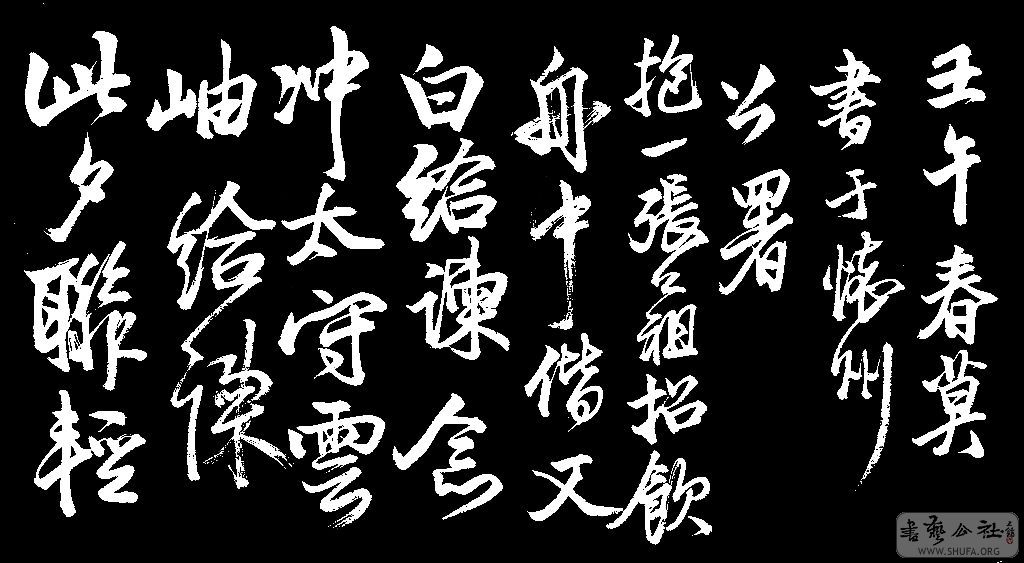 壬午春莫
書于懷州
公署
抱一張公祖招飲
舟中偕又
白給諫念
冲太守雲
岫給諫
此夕聯輕
書藝公社
WWW.SHUFA.ORG